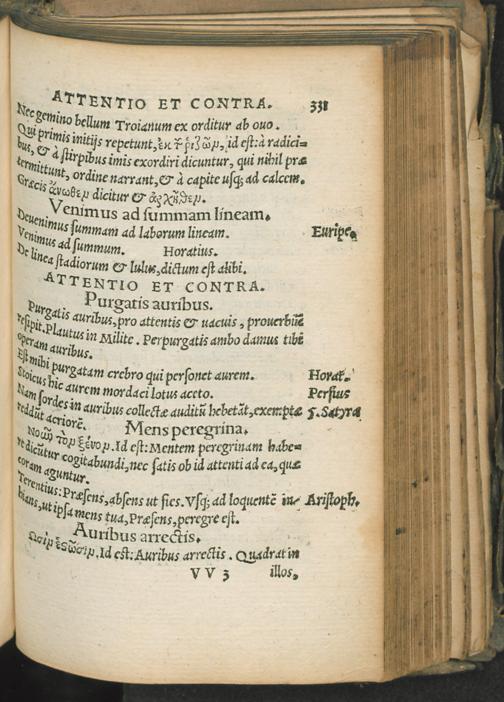 ATTENTIO ET CONTRA. 331
Nec gemino bellum Troianum ex orditur ab ouo.
Qui primis initijs repetunt, ἐκ τ̃ ῥιζῶν, id est: à radici=
bus, & à stirpibus imis exordiri dicuntur, qui nihil præ
termittunt, ordine narrant, & à capite usq; ad calcem.
Græcis ἄνωθεν dicitur & ἀρχῆθεν.
Venimus ad summam lineam.
Deuenimus summam ad laborum lineam. Euripe.
Venimus ad summum. Horatius.
De linea stadiorum & lulus, dictum est alibi.
ATTENTIO ET CONTRA.
Purgatis auribus.
Purgatis auribus, pro attentis & uacuis, prouerbiũ
resipit. Plautus in Milite. Perpurgatis ambo damus tibi
operam auribus.
Est mihi purgatam crebro qui personet aurem. Horat.
Stoicus hic aurem mordaci lotus aceto. Persius
Nam sordes in auribus collectæ auditũ hebetãt, exemptæ 5. Satyra
reddũt acriorẽ. Mens peregrina.
Νοῦν τὸν ξένον. Id est: Mentem peregrinam habe=
re dicũtur cogitabundi, nec satis ob id attenti ad ea, quæ
coram aguntur.
Terentius: Præsens, absens ut sies. Vsq; ad loquentẽ in= Aristoph.
hians, ut ipsa mens tua, Præsens, peregre est.
Auribus arrectis.
Ὠσὶν ἑσῶσιν. Id est: Auribus arrectis. Quadrat in
V V 3 illos,